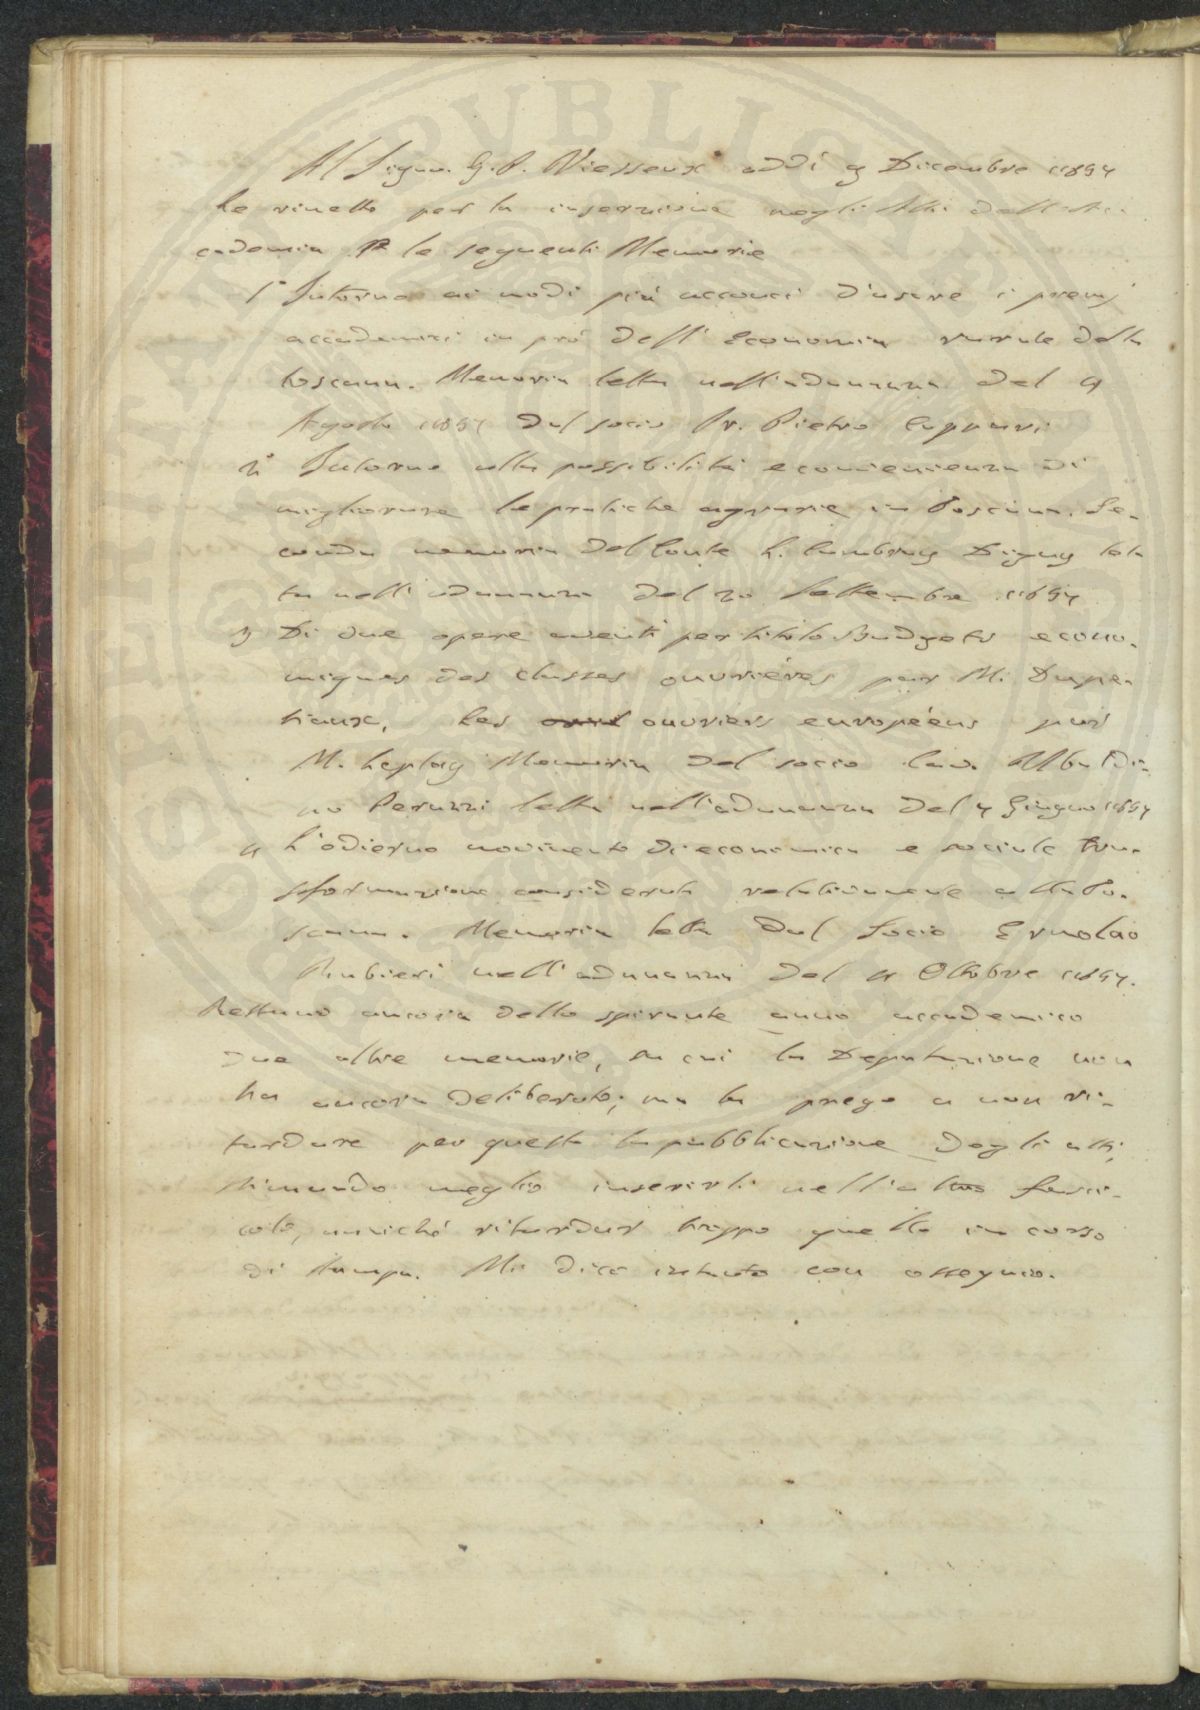 Al Signor. G. P. Vieusseux addì 9 Dicembre 1857
Le rimetto per la inserzione negli Atti dell'Ac-
cademia le seguenti Memorie
1° Intorno ai modi più acconci d'usare i premj
accademici in prò dell'Economia rurale della
toscana. Memoria letta nell'adunanza del 9
Agosto 1857 dal socio Dr. Pietro Cuppari
2° Intorno alla possibilità e convenienza di
migliorare le pratiche agrarie in Toscana. Se-
conda memoria del Conte L. Cambray Digny let-
ta nell'adunanza del 20 Settembre 1857
3 Di due opere aventi per titolo Budgets econo-
miques des classes ouvrières par M. Dupe-
tiaux, Les ouvriers européens par
M. Leplay Memoria del socio Cav. Ubaldi-
no Peruzzi letta nell'adunanza del 7 Giugno 1857
4 L'odierno movimento di economica e sociale tra-
sformazione considerato relativamente alla To-
scana. Memoria letta dal Socio Ermolao
Rubieri nell'adunanza del 4 Ottobre 1857.
Restano ancora dello spirante anno accademico
due altre memorie, su cui la Deputazione non
ha ancora deliberato; ma la prego a non ri-
tardare per questo la pubblicazione degli atti,
stimando meglio inserirli nell'altro fasci-
colo, anziché ritardar troppo quello in corso
di stampa. Mi dico intanto con ossequio.
PVBLICA